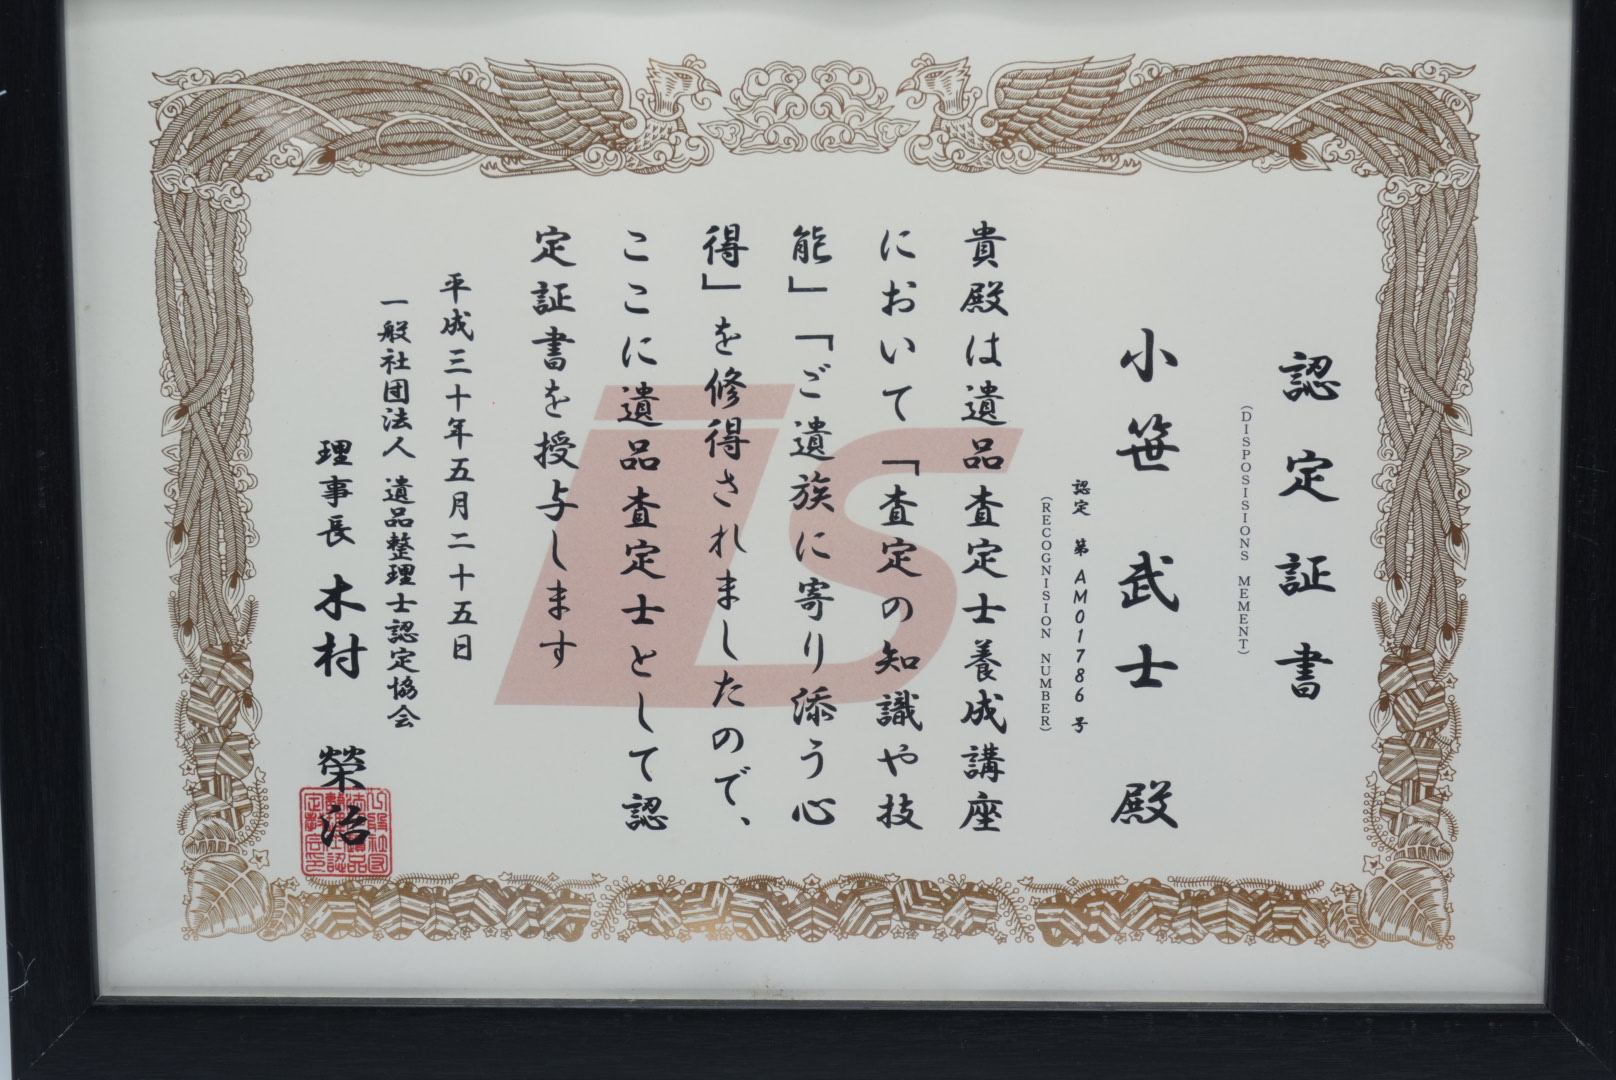 認定証書
(DISPOSISIONS MEMENT)
小笹 武士 殿
認定 第 AM01786 号
(RECOGNISION NUMBER)
貴殿は遺品査定士養成講座
において「査定の知識や技
能」「ご遺族に寄り添う心
得」を修得されましたので、
ここに遺品査定士として認
定証書を授与します
平成三十年五月二十五日
一般社団法人 遺品整理士認定協会
理事長 木村 榮治
is